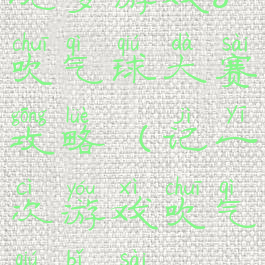 chuī qì qiú dà sài
吹气球大赛
gōng lüè jì yī
攻略（记一
cì yóu xì chuī qì
次游戏吹气